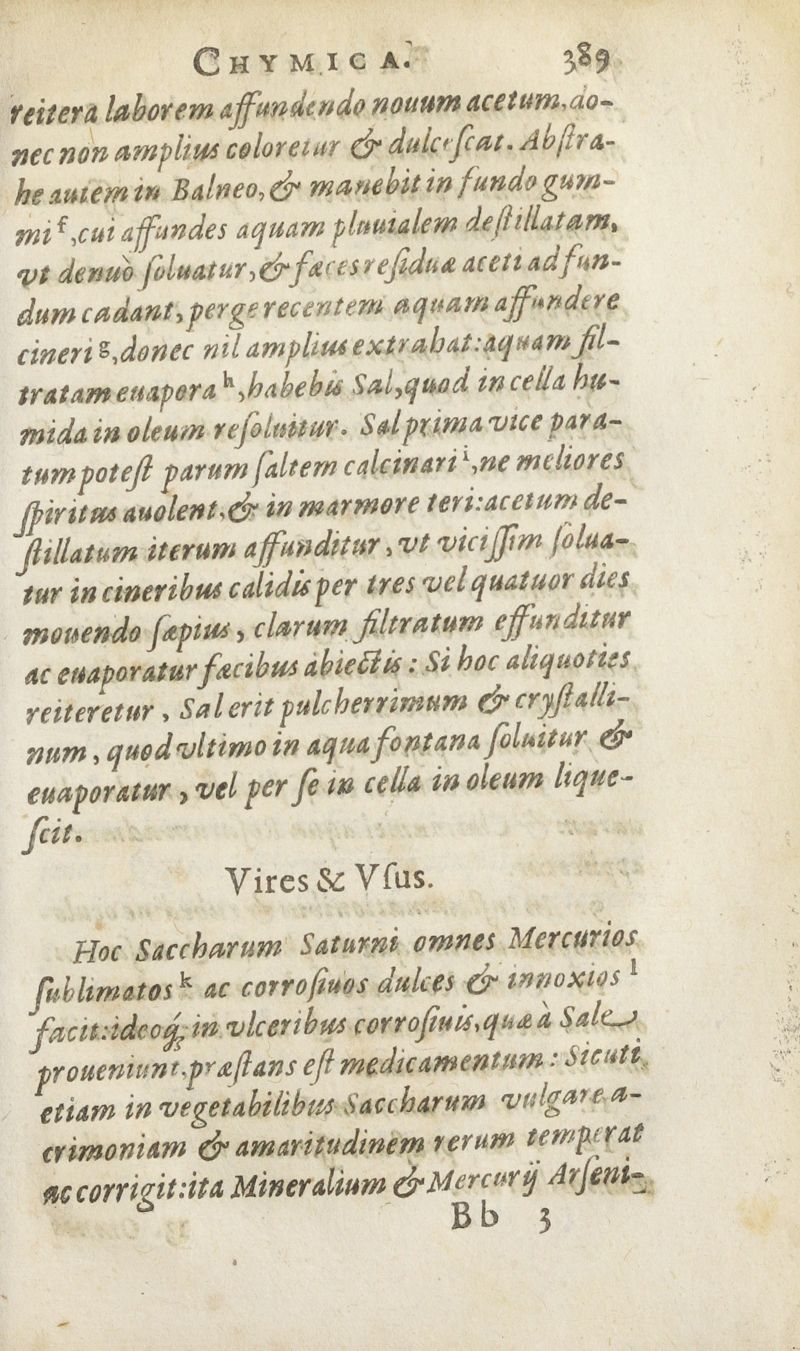 CHYMICA. 389
reitera laborem affundendo nouum acetum, do-
nec non amplius coloretur & dulcescat. Abſtra-
he autem in Balneo, & manebit in fundo gum-
mi f, cui affundes aquam pluuialem deſtillatam,
vt denuò ſoluatur, & fæces reſiduæ aceti ad fun-
dum cadant, perge recentem aquam affundere
cineri g, donec nil amplius extrahat: aquam fil-
tratam euapora h, habebis Sal, quod in cella hu-
mida in oleum reſoluitur. Sal prima vice para-
tum poteſt parum ſaltem calcinari i, ne meliores
ſpiritus auolent, & in marmore teri: acetum de-
ſtillatum iterum affunditur, vt viciſſim ſolua-
tur in cineribus calidis per tres vel quatuor dies
mouendo ſæpius, clarum filtratum effunditur
ac euaporatur fæcibus abiectis: Si hoc aliquoties
reiteretur, Sal erit pulcherrimum & cryſtalli-
num, quod vltimo in aqua fontana ſoluitur &
euaporatur, vel per ſe in cella in oleum lique-
ſcit.
Vires & Vſus.
Hoc Saccharum Saturni omnes Mercurios
ſublimatos k ac corroſiuos dulces & innoxios l
facit: ideoq́; in vlceribus corroſiuis, quæ à Sale
proueniunt, præſtans eſt medicamentum: Sicuti
etiam in vegetabilibus Saccharum vulgare a-
crimoniam & amaritudinem rerum temperat
ac corrigit: ita Mineralium & Mercurij Arſeni-
Bb 3